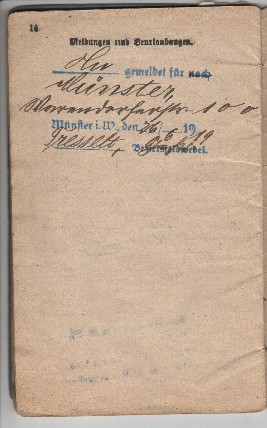 14
Meldungen und Beurlaubungen.
An gemeldet für nach
Münster,
Warendorferstr. 100
Münster i. W., den 26/6 1919
Bezirksfeldwebel.